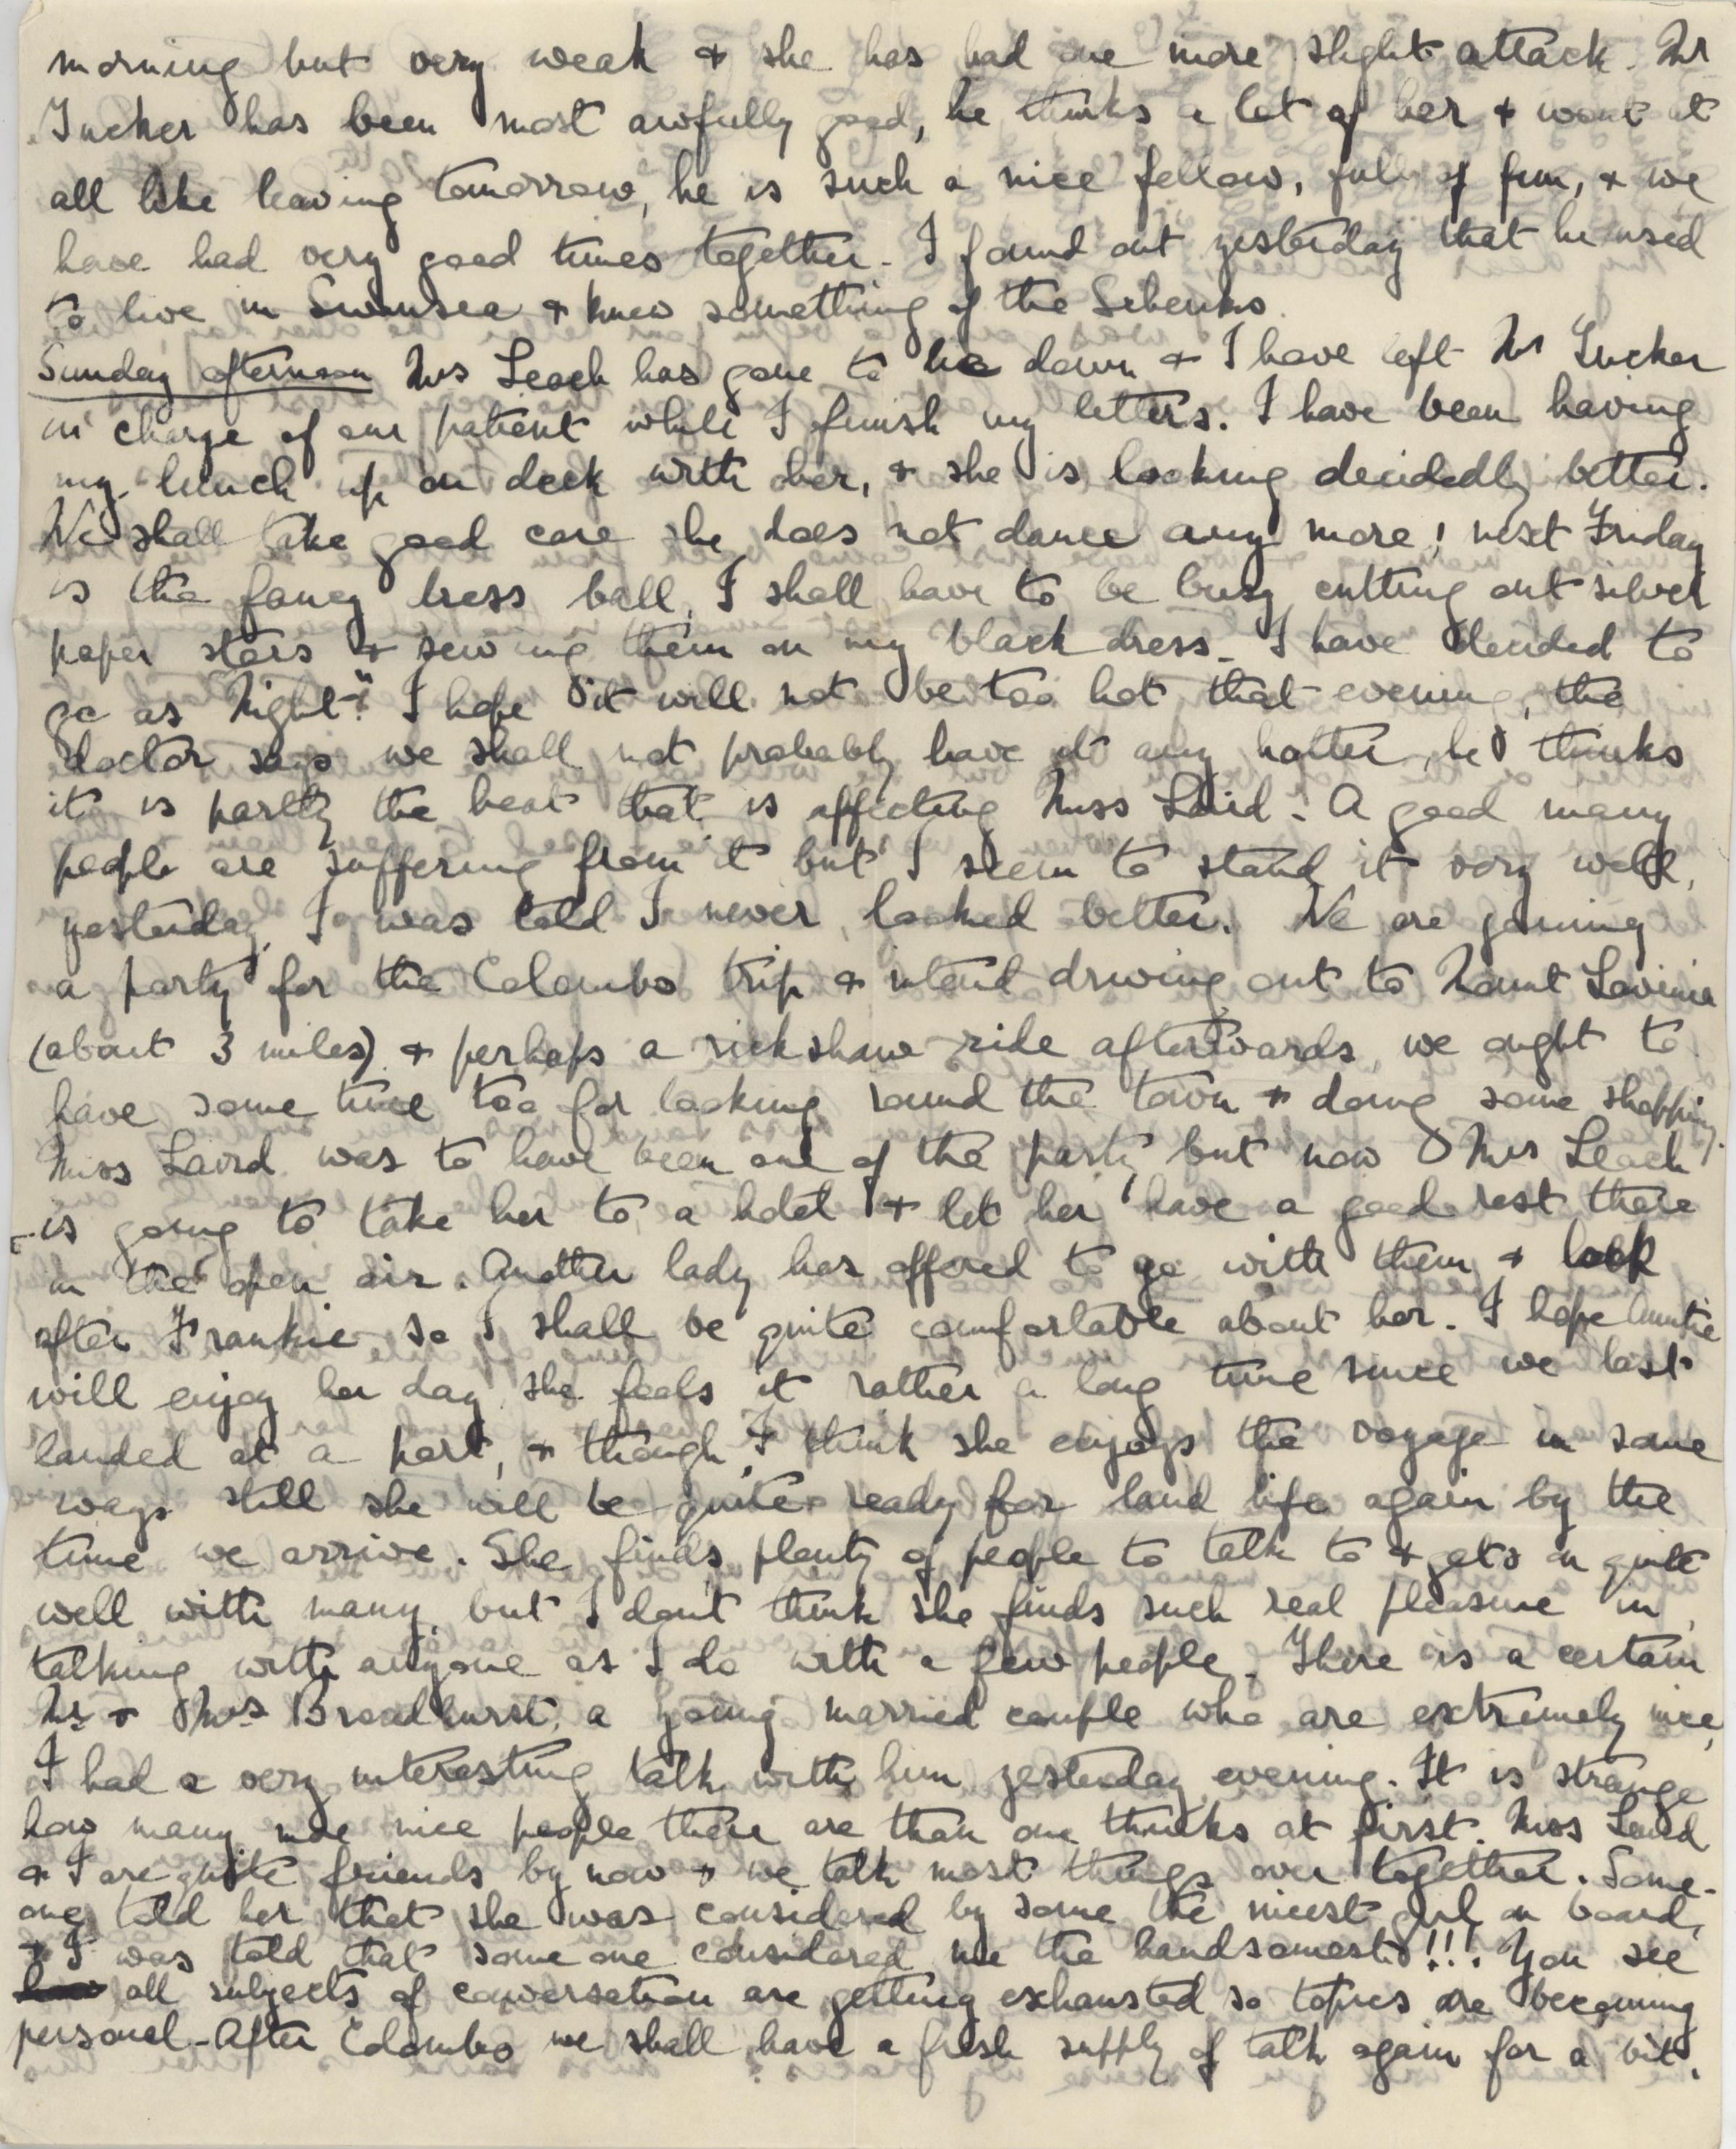 morning but very weak & she has had one more slight attack. Mr
Tucker has been most awfully good, he thinks a lot of her & wont at
all like leaving tomorrow, he is such a nice fellow, full of fun, & we
have had very good times together. I found out yesterday that he used
to live in Swansea & knew something of the
Sunday afternoon Mrs Leach has gone to lie down & I have left Mr Tucker
in charge of our patient while I finish my letters. I have been having
my lunch up on deck with her, & she is looking decidedly better.
We shall take good care she does not dance any more! next Friday
is the fancy dress ball, I shall have to be busy cutting out silver
paper stars & sewing them on my black dress. I have decided to
go as Night". I hope it will not be too hot that evening, the
doctor says we shall not probably have it any hotter, he thinks
it is partly the heat that is affecting Miss Laird. A good many
people are suffering from it but I seem to stand it very well,
yesterday I was told I never looked better. We are joining
a party for the Colombo trip & intend driving out to Mount Lavinia
(about 3 miles) & perhaps a rickshaw ride afterwards, we ought to
have some time too for looking round the town & doing some shopping.
Miss Laird was to have been one of the party but now Mrs Leach
is going to take her to a hotel & let her have a good rest there
in the open air. Another lady has offered to go with them & look
after Frankie so I shall be quite comfortable about her. I hope Auntie
will enjoy her day she feels it rather a long time since we last
landed at a port, & though I think she enjoys the voyage in some
ways still she will be quite ready for land life again by the
time we arrive. She finds plenty of people to talk to & gets on quite
well with many but I don't think she finds such real pleasure in
talking with anyone as I do with a few people. There is a certain
Mr & Mrs Broadhurst, a young married couple who are extremely nice,
I had a very interesting talk with him yesterday evening. It is strange
how many more nice people there are than one thinks at first. Miss Laird
& I are quite friends by now & we talk most things over together. Some-
one told her that she was considered by some the nicest girl on board,
& I was told that some one considered me the handsomest!!! You see
all subjects of conversation are getting exhausted so topics are becoming
personal - After Colombo we shall have a fresh supply of talk again for a bit.